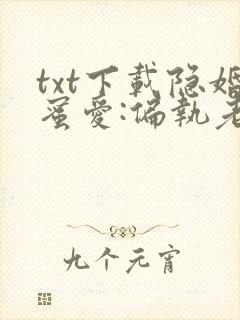 txt下载隐婚
蜜爱:偏执老
九个元宵